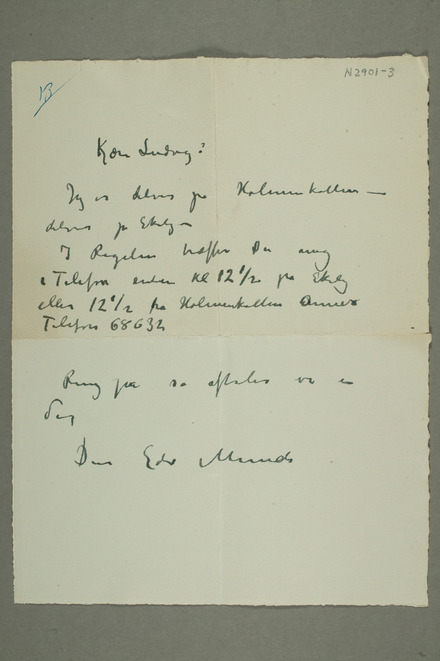 N2901-3
13
Kære Ludvig!
Jeg er delvis på Holmenkollen –
delvis på Ekely –
I Regelen træffer Du mig
i Telefon enten Kl 12 1/2 på Ekely
eller 12 1/2 fra Holmenkollen Annex
Telefon 68632
Ring på så aftaler vi en
Dag
Din Edv Munch